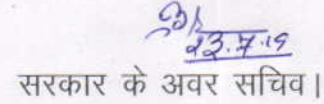 23.7.19
सरकार के अवर सचिव।